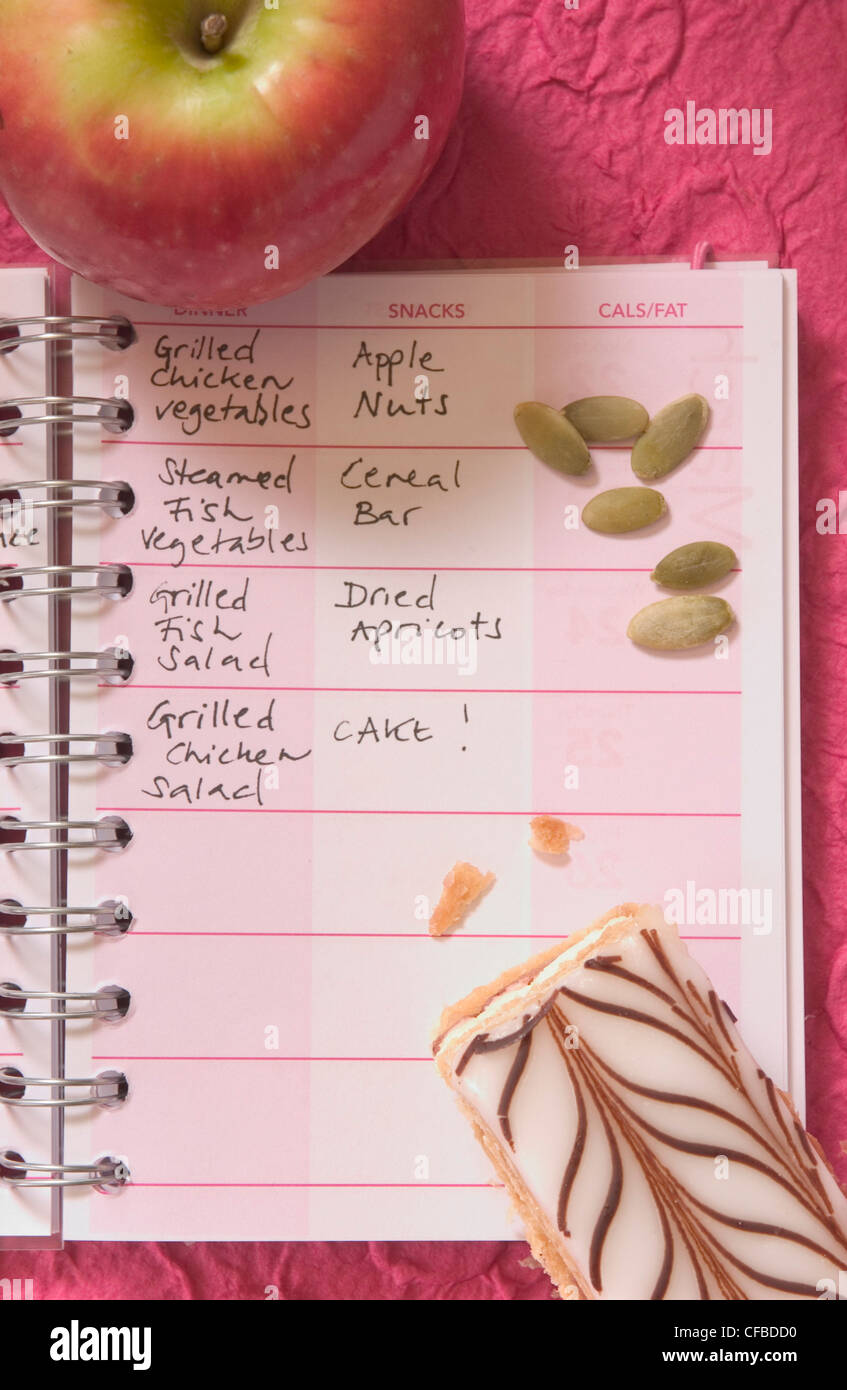 DINNER SNACKS CALS/FAT
Grilled
chicken
vegetables
Apple
Nuts
Steamed
Fish
vegetables
Cereal
Bar
Grilled
Fish
Salad
Dried
Apricots
Grilled
Chicken
Salad
CAKE!
a alamy stock photo
CFBDD0
www.alamy.com